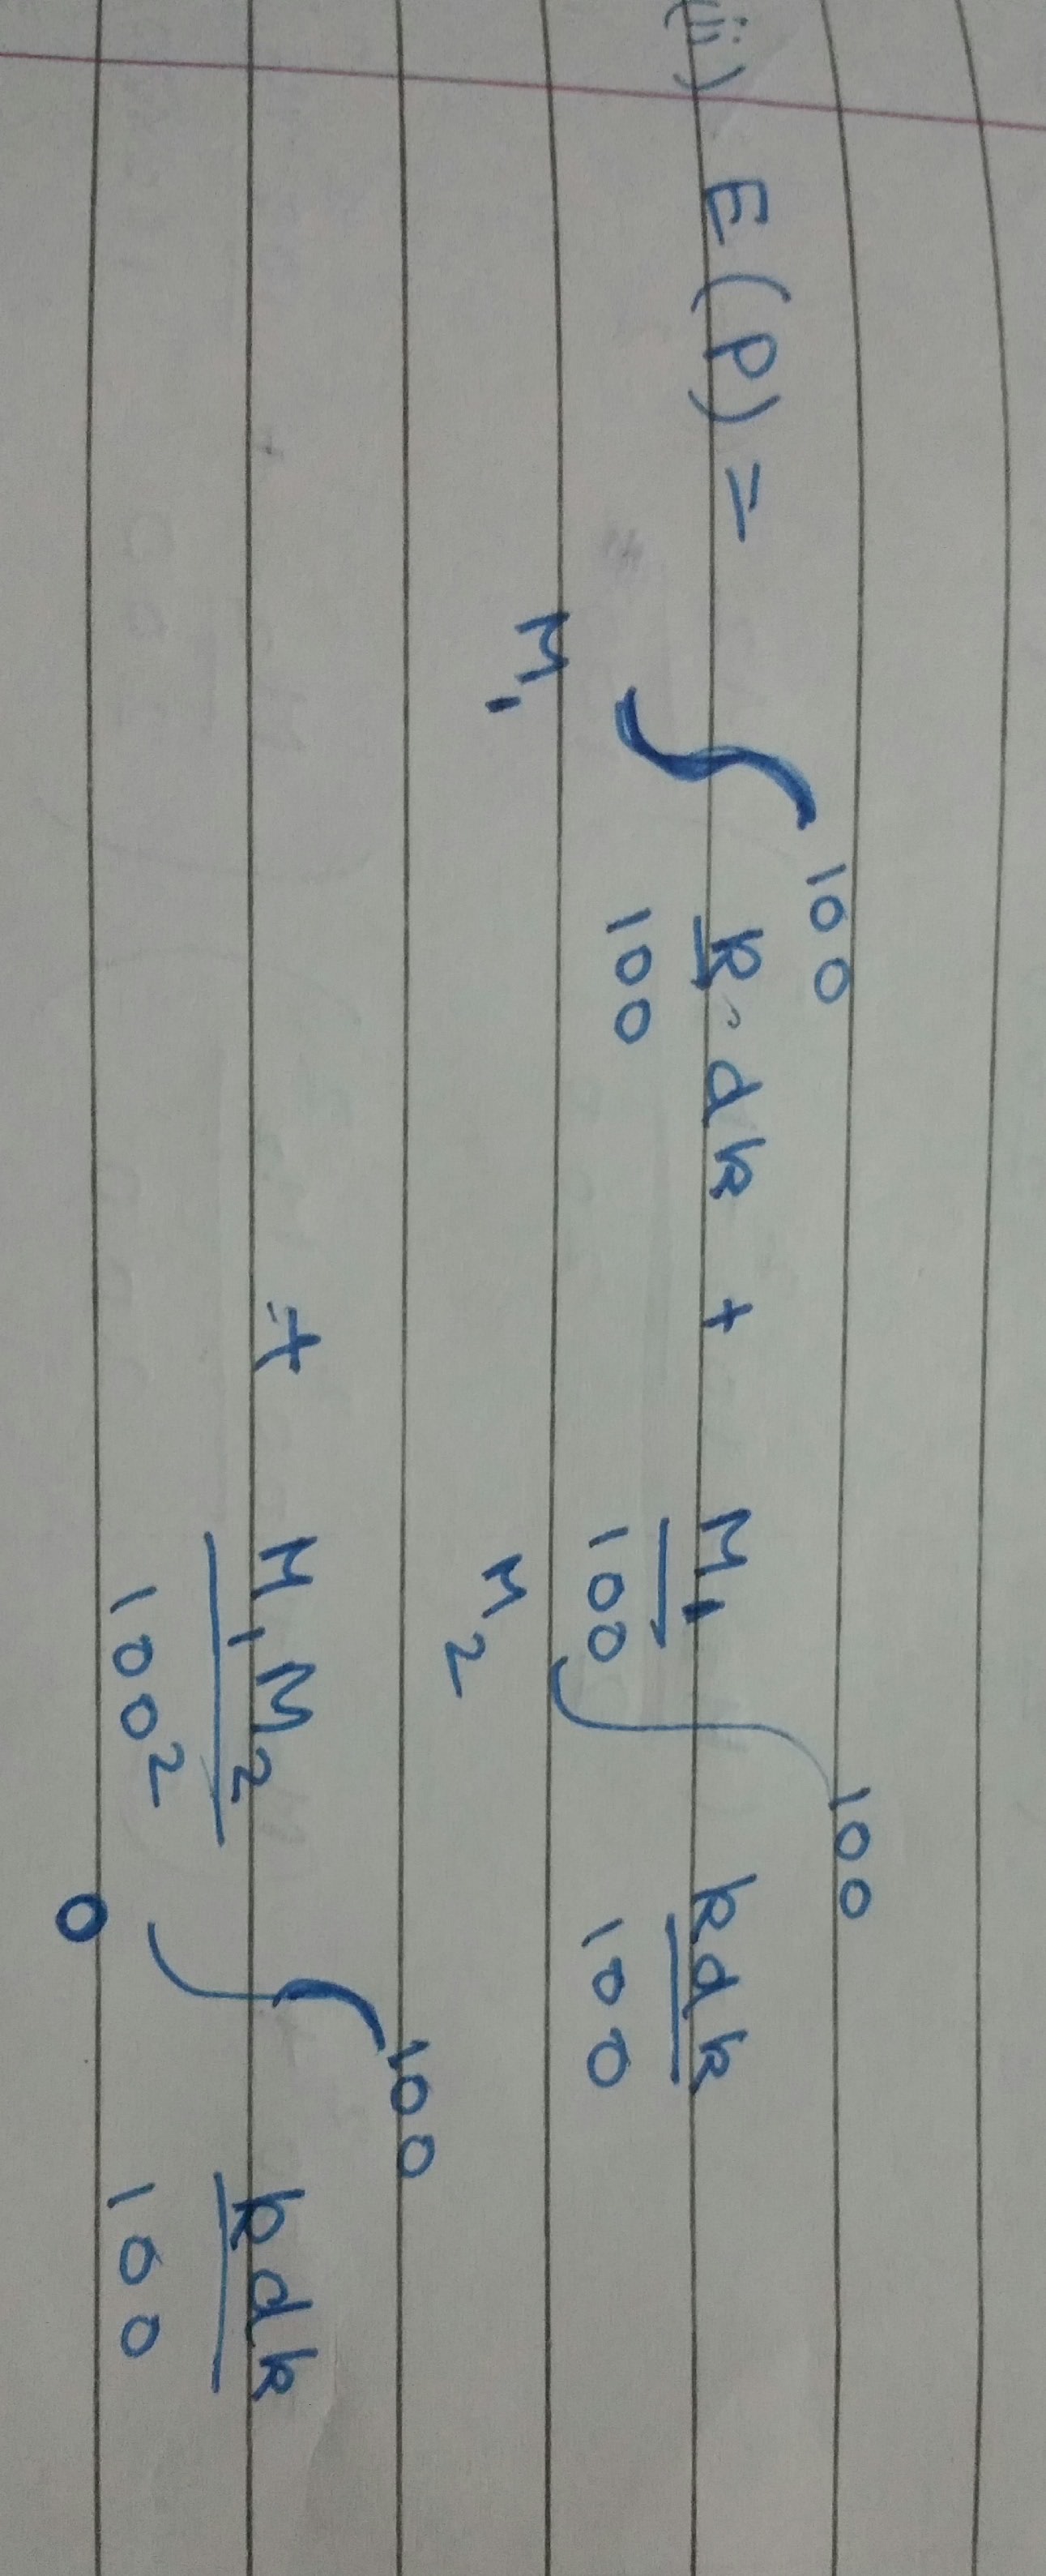 (ii) E(P) = ∫_{M₁}^{100} k/100 · dk + M₁/100 ∫_{M₂}^{100} kdk/100
+ M₁M₂/100² ∫_{0}^{100} kdk/100